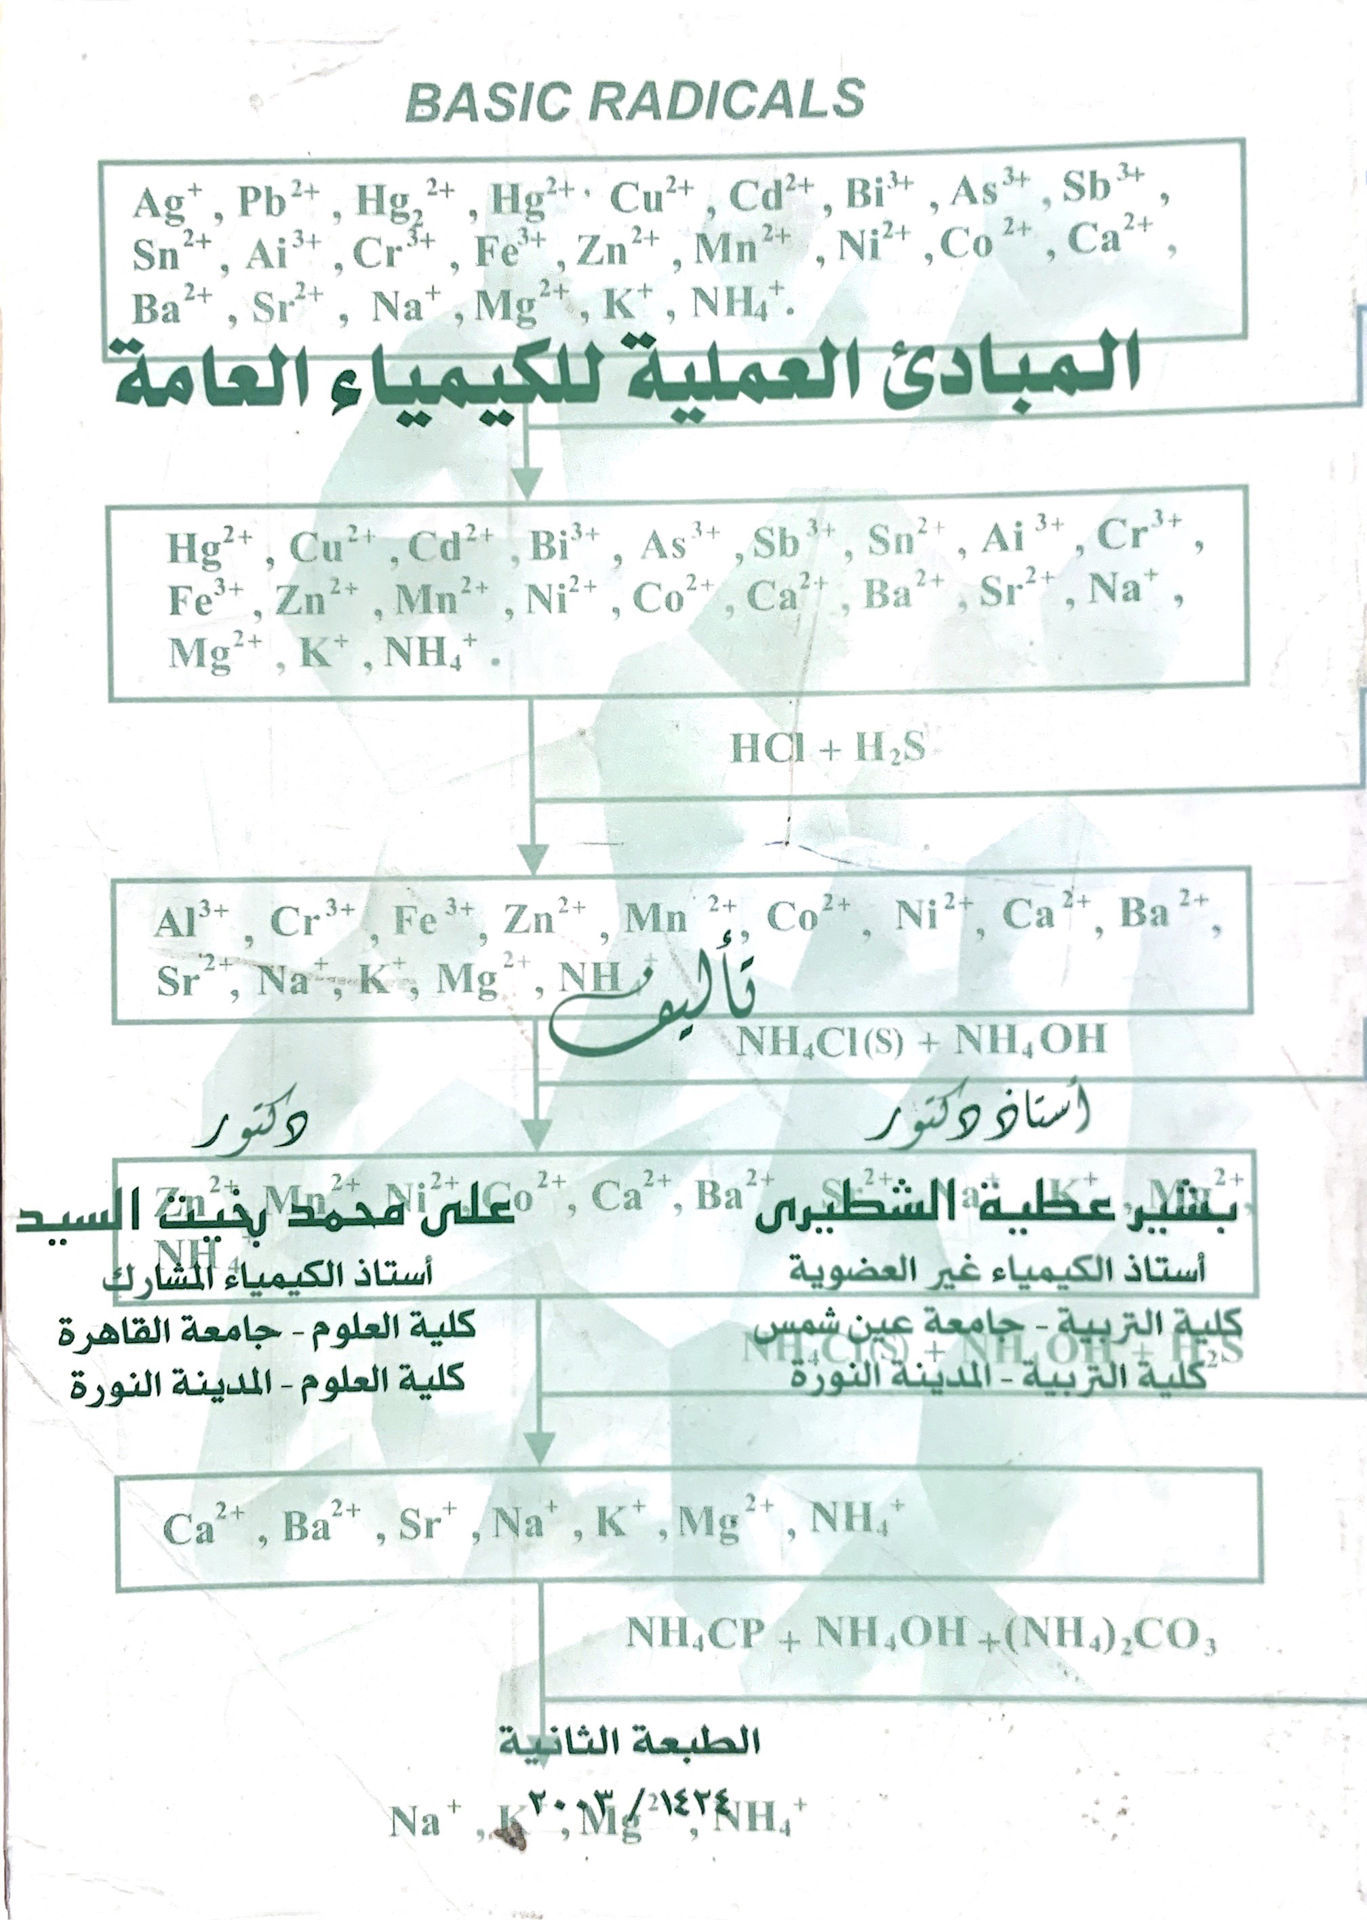 BASIC RADICALS
Ag⁺ , Pb²⁺ , Hg₂²⁺ , Hg²⁺ , Cu²⁺ , Cd²⁺ , Bi³⁺ , As³⁺ , Sb³⁺ ,
Sn²⁺ , Ai³⁺ , Cr³⁺ , Fe³⁺ , Zn²⁺ , Mn²⁺ , Ni²⁺ , Co²⁺ , Ca²⁺ ,
Ba²⁺ , Sr²⁺ , Na⁺ , Mg²⁺ , K⁺ , NH₄⁺ .
المبادئ العملية للكيمياء العامة
Hg²⁺ , Cu²⁺ , Cd²⁺ , Bi³⁺ , As³⁺ , Sb³⁺ , Sn²⁺ , Ai³⁺ , Cr³⁺ ,
Fe³⁺ , Zn²⁺ , Mn²⁺ , Ni²⁺ , Co²⁺ , Ca²⁺ , Ba²⁺ , Sr²⁺ , Na⁺ ,
Mg²⁺ , K⁺ , NH₄⁺ .
HCl + H₂S
Al³⁺ , Cr³⁺ , Fe³⁺ , Zn²⁺ , Mn²⁺ , Co²⁺ , Ni²⁺ , Ca²⁺ , Ba²⁺ ,
Sr²⁺ , Na⁺ , K⁺ , Mg²⁺ , NH₄⁺
تأليف
NH₄Cl(S) + NH₄OH
أستاذ دكتور
بشير عطية الشطيرى
أستاذ الكيمياء غير العضوية
كلية التربية - جامعة عين شمس
كلية التربية - المدينة النورة
دكتور
على محمد بخيت السيد
أستاذ الكيمياء المشارك
كلية العلوم - جامعة القاهرة
كلية العلوم - المدينة النورة
Zn²⁺ , Mn²⁺ , Ni²⁺ , Co²⁺ , Ca²⁺ , Ba²⁺ , Sr²⁺ , Na⁺ , K⁺ , Mg²⁺ ,
NH₄⁺
NH₄Cl(S) + NH₄OH + H₂S
Ca²⁺ , Ba²⁺ , Sr⁺ , Na⁺ , K⁺ , Mg²⁺ , NH₄⁺
NH₄CP + NH₄OH +(NH₄)₂CO₃
الطبعة الثانية
١٤٢٤ / ٢٠٠٣
Na⁺ , K⁺ , Mg²⁺ , NH₄⁺